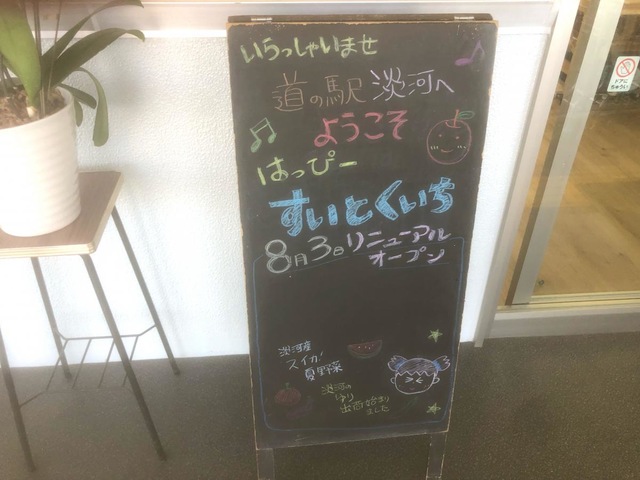 いらっしゃいませ
道の駅 淡河へ
ようこそ
はっぴー
すいとくいち
8月3日リニューアル
オープン
淡河産
スイカ!
夏野菜
淡河の
ゆり
出荷始まり
ました
ドアに
ちゅうい